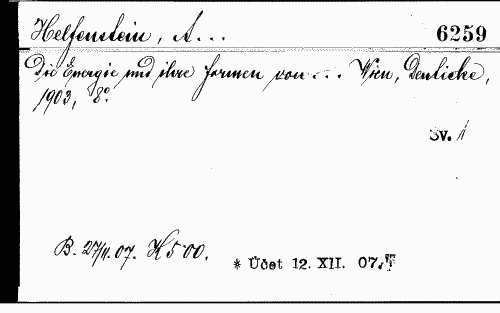 Helfenstein, A...
6259
Die Energie und ihre Formen von... Wien, Deuticke,
1903, 8°.
Sv. 1
B. 27/11. 07. K 5·00.
* Účet 12. XII. 07.